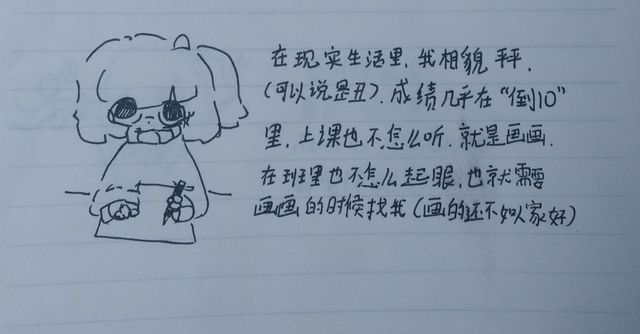 在现实生活里,我相貌平平.
(可以说是丑).成绩几乎在“倒10”
里,上课也不怎么听.就是画画.
在班里也不怎么起眼,也就需要
画画的时候找我(画的还不如人家好)